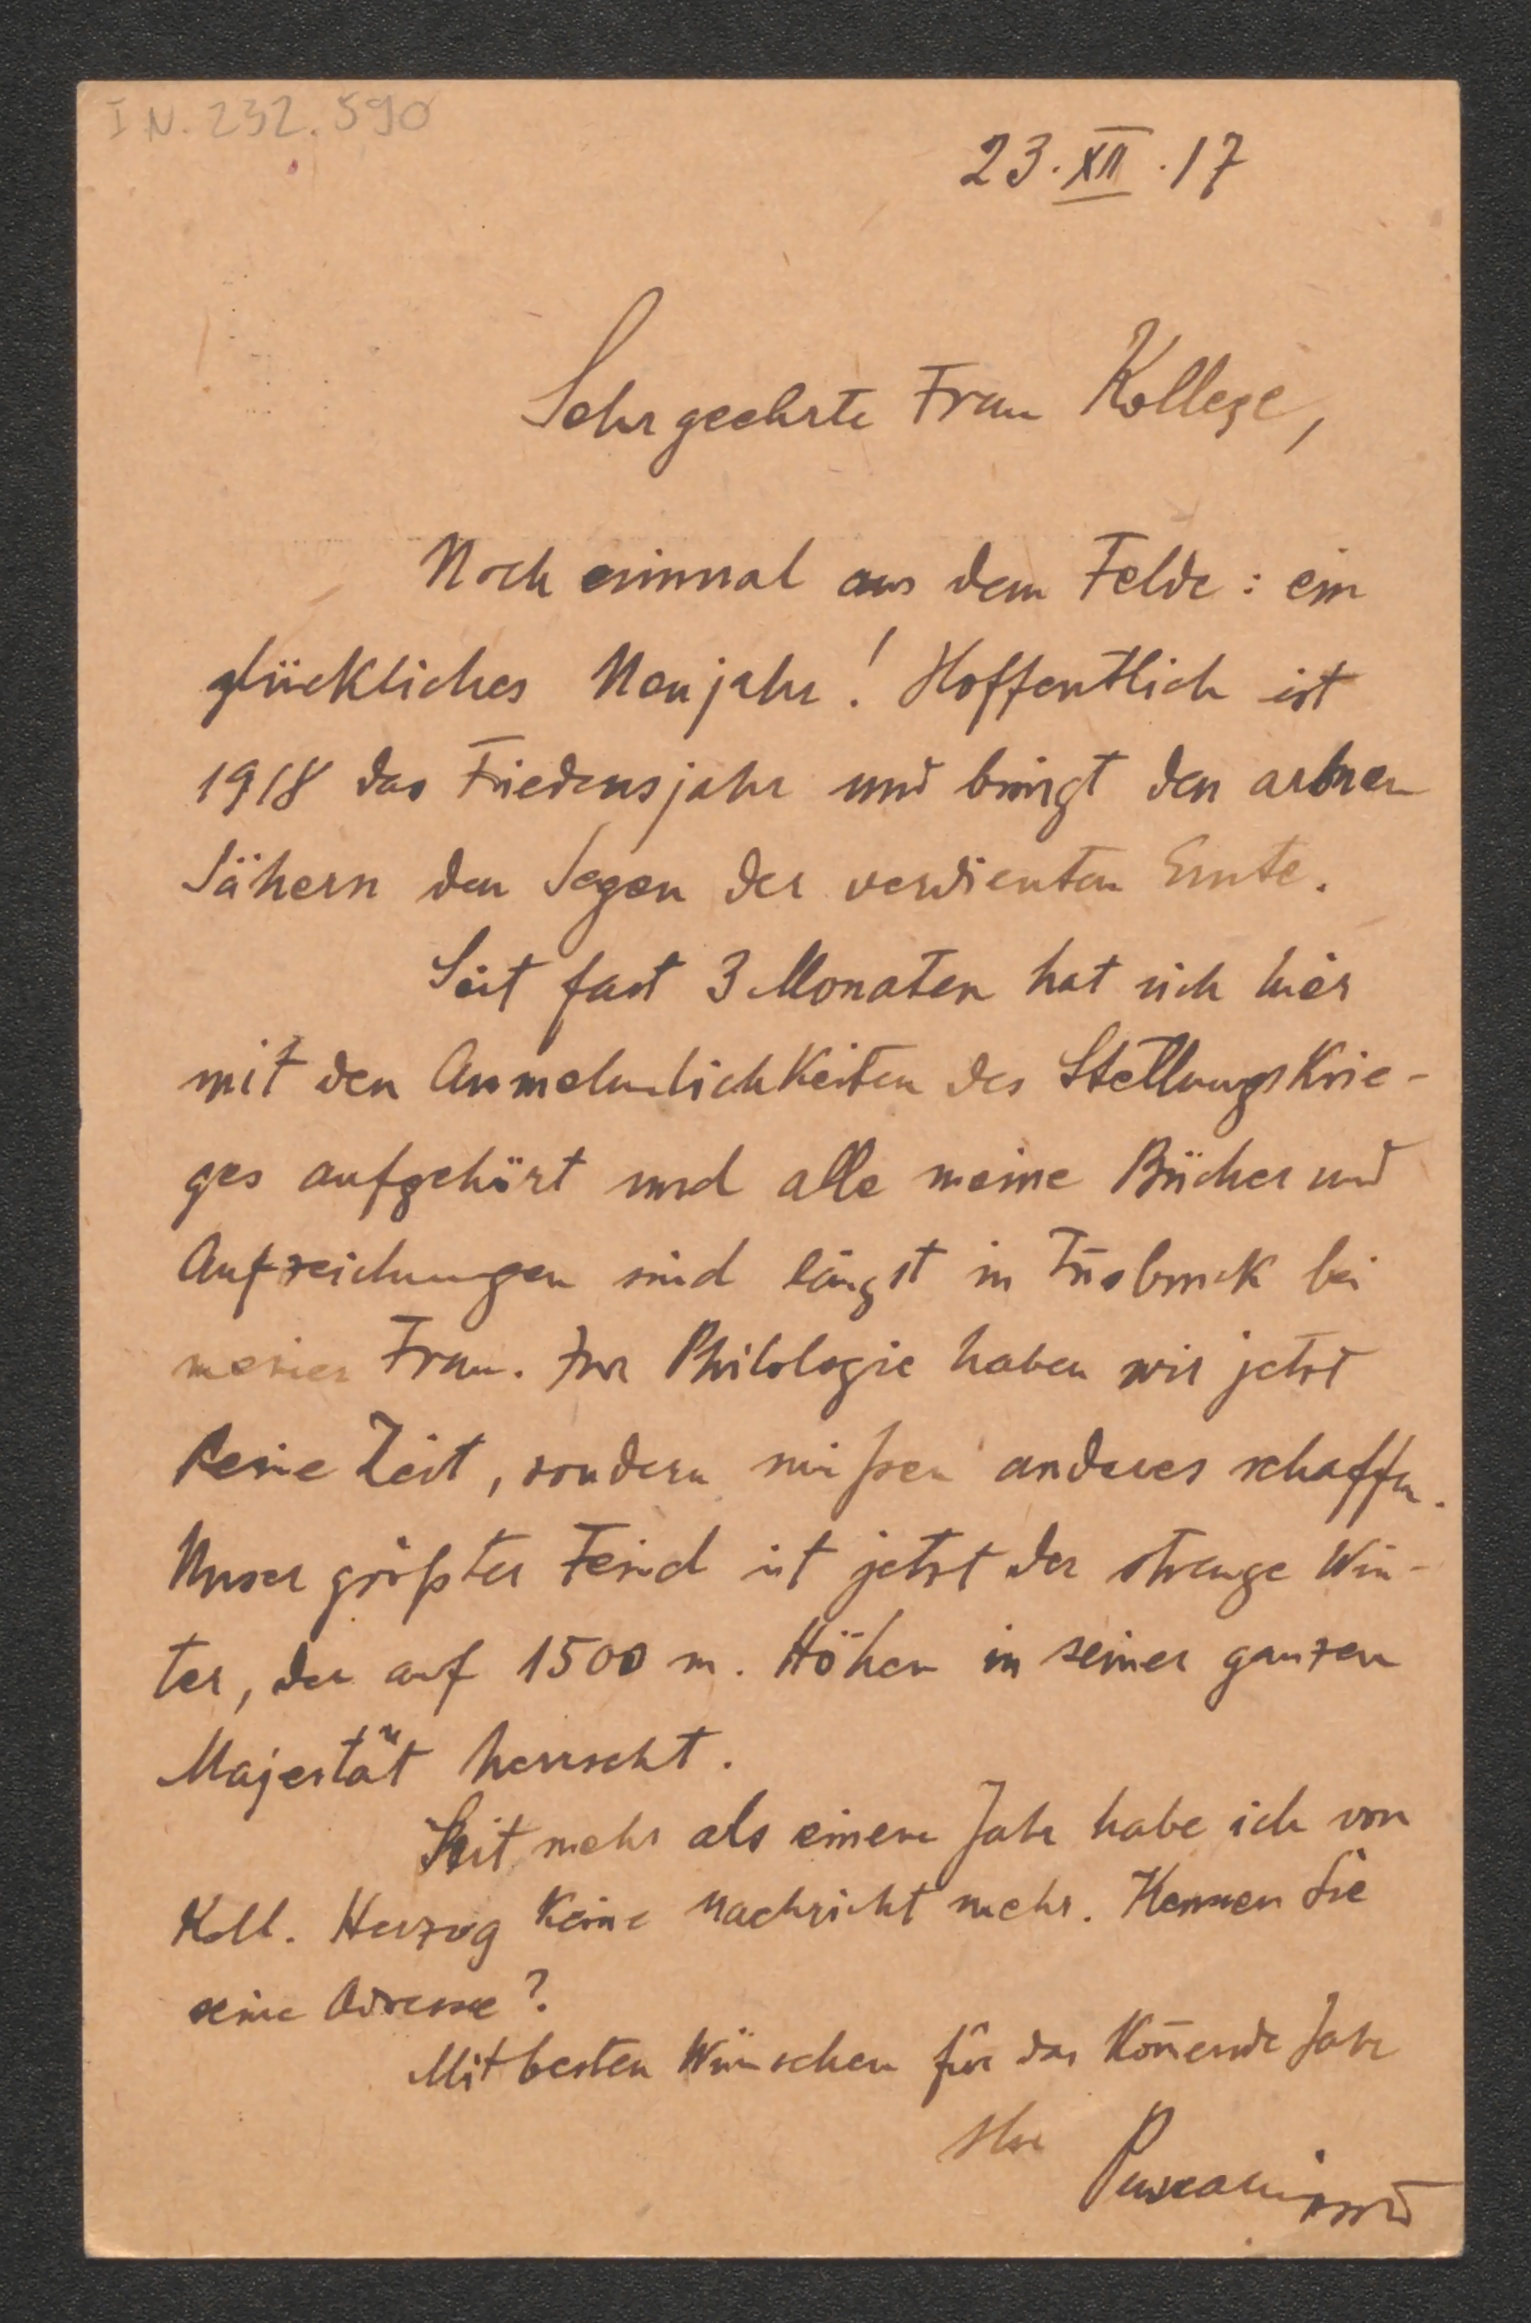 I N. 232.590
23.XII.17
Sehr geehrte Frau Kollege,
Noch einmal aus dem Felde: ein
glückliches Neujahr! Hoffentlich ist
1918 das Friedensjahr und bringt den armen
Sähern den Segen der verdienten Ernte.
Seit fast 3 Monaten hat sich hier
mit den Annehmlichkeiten des Stellungskrie-
ges aufgehört und alle meine Bücher und
Aufzeichnungen sind längst in Insbruck bei
meiner Frau. Zur Philologie haben wir jetzt
keine Zeit, sondern müßen anderes schaffen.
Unser größter Feind ist jetzt der strenge Win-
ter, der auf 1500 m. Höhen in seiner ganzen
Majestät herrscht.
Seit mehr als einem Jahr habe ich von
Koll. Herzog keine Nachricht mehr. Kennen Sie
seine Adresse?
Mit besten Wünschen für das kom̄ende Jahr
Ihr